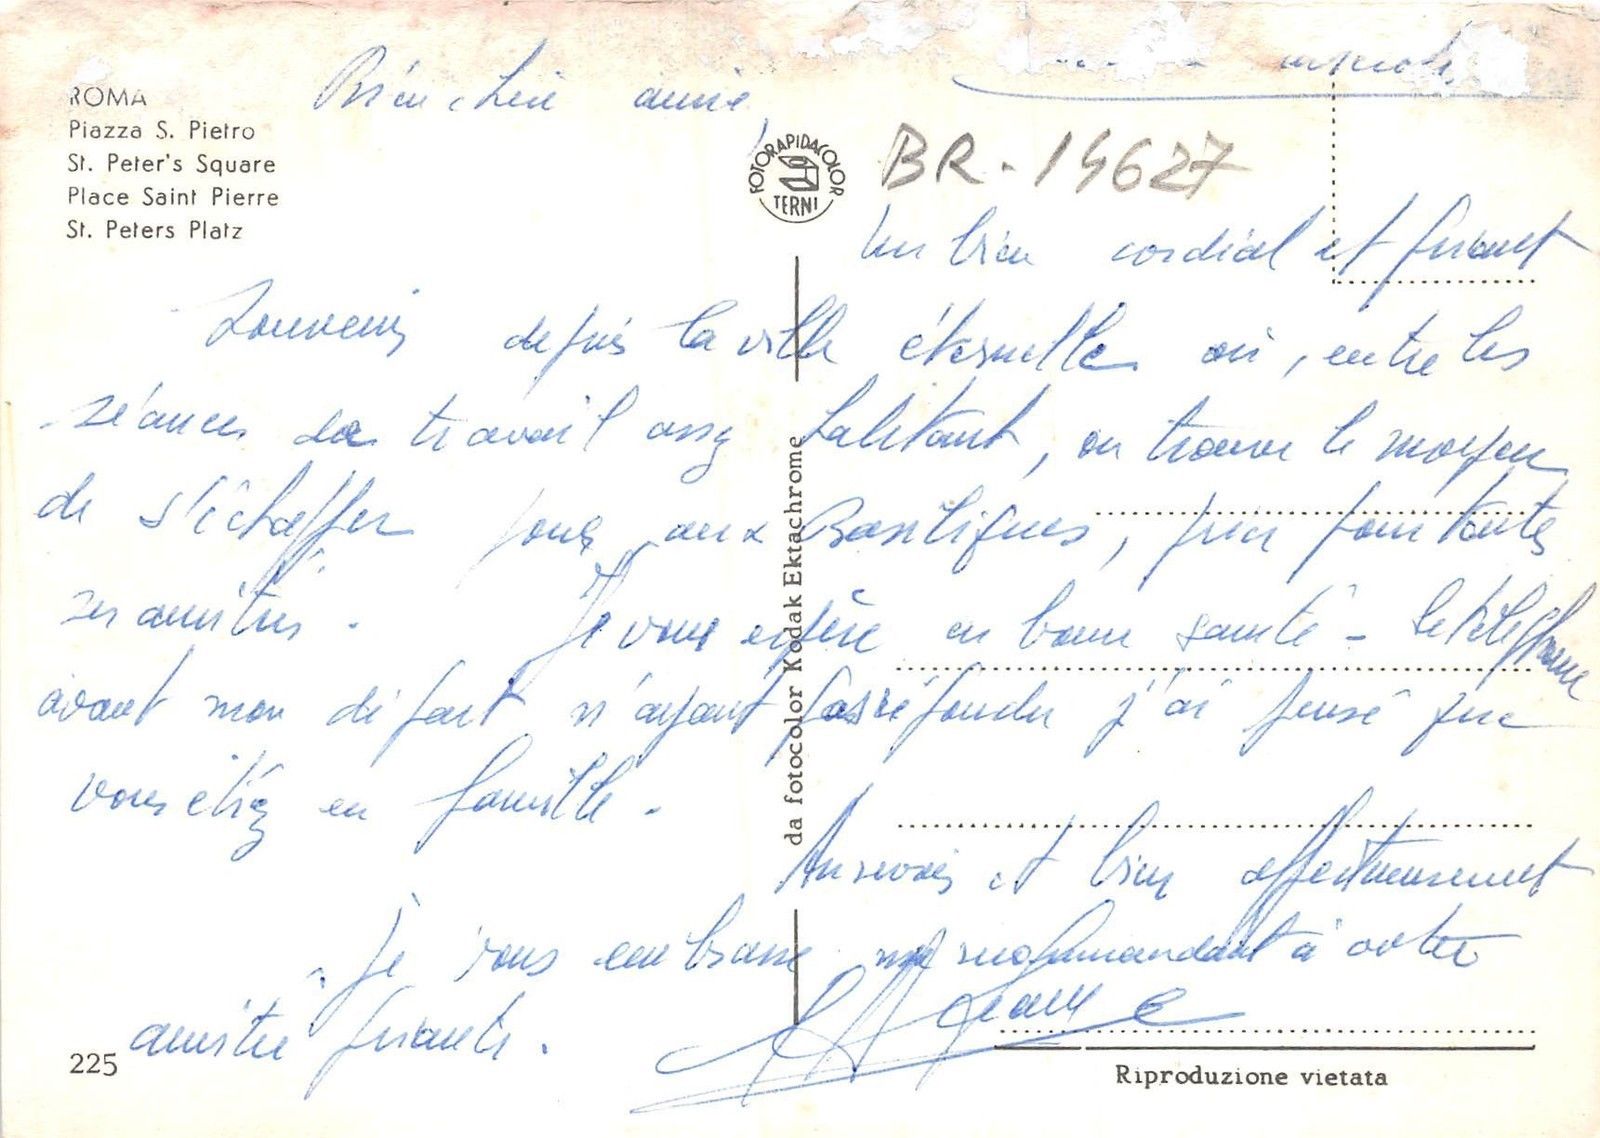 ROMA
Piazza S. Pietro
St. Peter's Square
Place Saint Pierre
St. Peters Platz
Bien chère amie,
FOTORAPIDACOLOR
TERNI
BR-14627
Un bien cordial et priant
Souvenir depuis la ville éternelle où, entre les
séances de travail assez, on trouve le moyen
de s'échapper pour aux Basiliques, prier pour toutes
ses amitiés. Je vous espère en bonne santé - le téléphone
avant mon départ n'ayant pas répondu j'ai pensé que
vous étiez en famille.
Au revoir et bien affectueusement
je vous embrasse me recommandant à votre
amitié priante.
Jeanne
da fotocolor Kodak Ektachrome
225
Riproduzione vietata